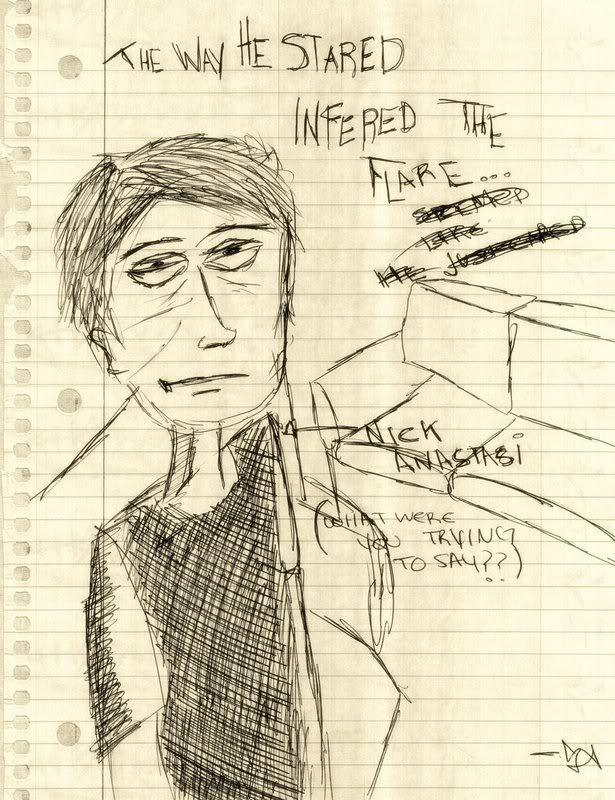 THE WAY HE STARED
INFERED THE
FLARE...
SEEMED
LIKE
HE
NICK
ANASTASI
(WHAT WERE
YOU TRYING
TO SAY??)